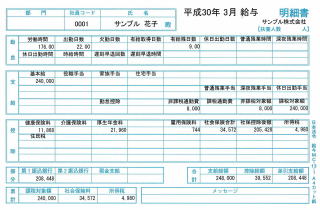 部門 社員コード 氏名
0001 サンプル 花子 殿
平成30年 3月 給与 明細書
サンプル株式会社
[扶養人数 人]
勤怠
労働時間 出勤日数 欠勤日数 有給取得日数 有給残日数 休日出勤日数 普通残業時間 深夜残業時間
176.00 22.00 9.00
休日出勤時間 時給時間 遅刻早退回数 遅刻早退時間
支給
基本給 役職手当 家族手当 住宅手当
240,000
普通残業手当 深夜残業手当
勤怠控除 非課税通勤費 課税通勤費 課税対象額 総支給額
8,000 240,000 248,000
控除
健康保険料 介護保険料 厚生年金料 雇用保険料 社会保険合計 社保控除後額 所得税
11,868 21,960 744 34,572 205,428 4,980
住民税
第1振込銀行 第2振込銀行 現金支給
208,448
支給合計 控除合計 差引支給額
248,000 39,552 208,448
累計
課税対象額 社会保険料 所得税
240,000 34,572 4,980
メッセージ